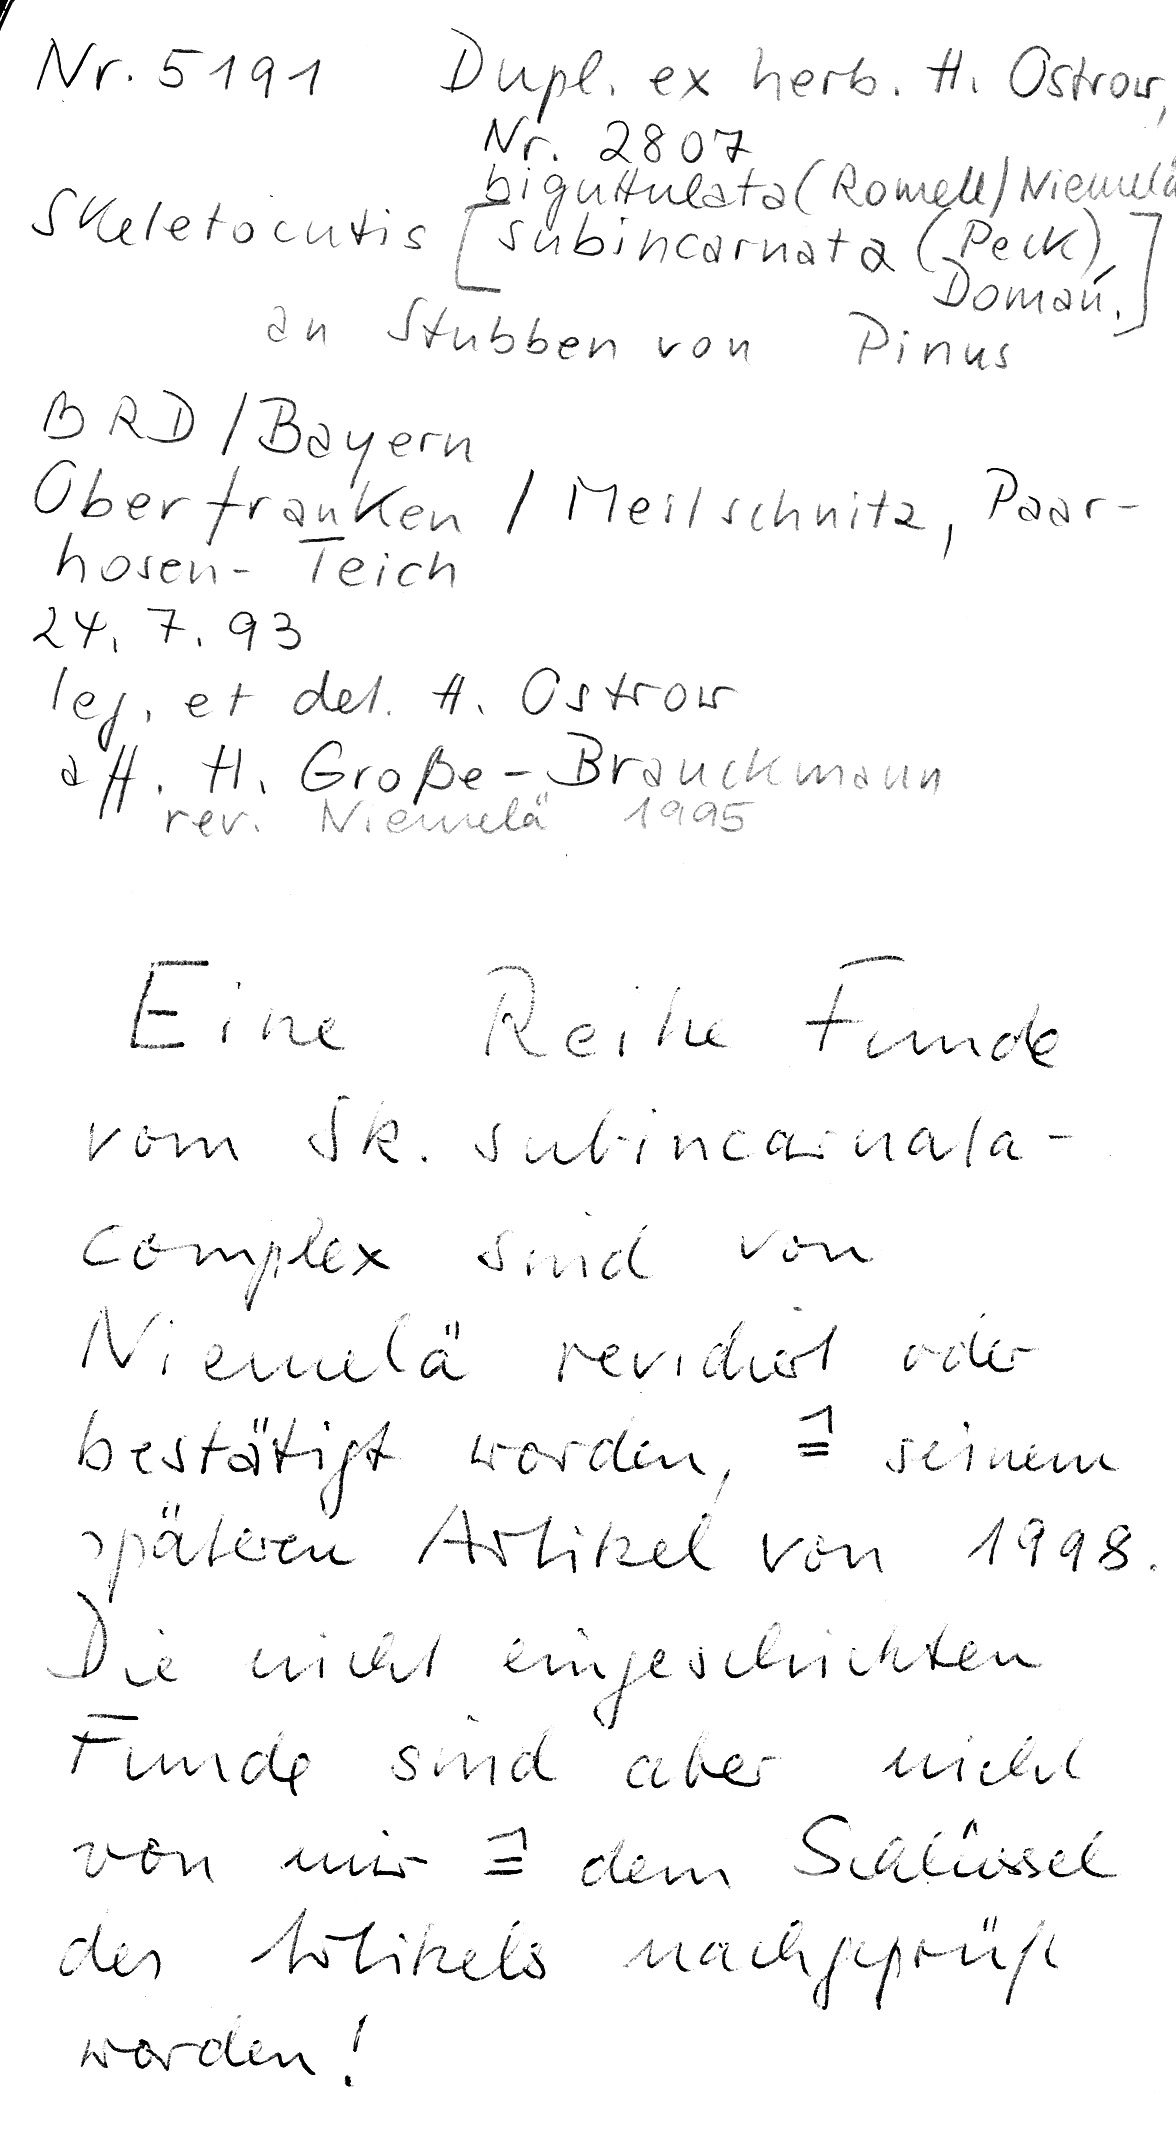 Nr. 5191 Dupl. ex herb. H. Ostrow,
Nr. 2807
biguttulata (Romell) Niemelä
Skeletocutis [subincarnata (Peck)
Domań.]
an Stubben von Pinus
BRD / Bayern
Oberfranken / Meilschnitz, Paar-
hosen-Teich
24. 7. 93
leg. et det. H. Ostrow
aff. H. Große-Brauckmann
rev. Niemelä 1995
Eine Reihe Funde
vom Sk. subincarnata-
complex sind von
Niemelä revidiert oder
bestätigt worden, ≙ seinem
späteren Artikel von 1998.
Die nicht eingeschickten
Funde sind aber nicht
von mir ≙ dem Schlüssel
des Artikels nachgeprüft
worden!